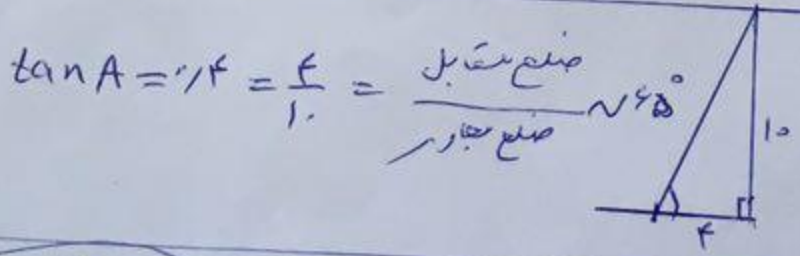 tan A = ۰/۴ = ۴/۱۰ = ضلع مقابل / ضلع مجاور ~ ۶۵°
۱۰
۴